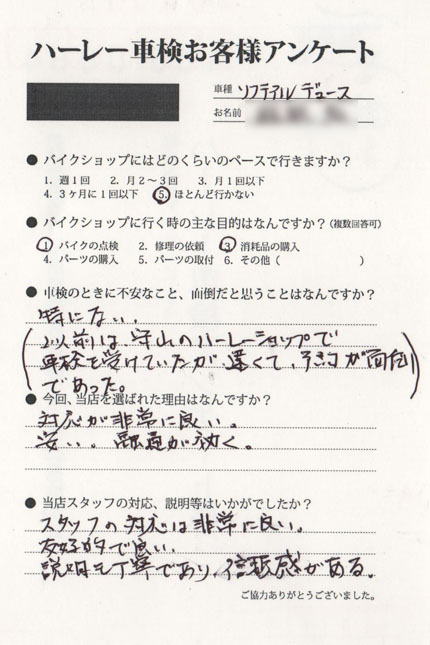 ハーレー車検お客様アンケート
車種 ソフティアル デュース
お名前
● バイクショップにはどのくらいのペースで行きますか？
1. 週1回 2. 月2〜3回 3. 月1回以下
4. 3ヶ月に1回以下 5. ほとんど行かない
● バイクショップに行く時の主な目的はなんですか？（複数回答可）
1. バイクの点検 2. 修理の依頼 3. 消耗品の購入
4. パーツの購入 5. パーツの取付 6. その他（ ）
● 車検のときに不安なこと、面倒だと思うことはなんですか？
特にない。
（以前は、守山のハーレーショップで
車検を受けていたが、遠くて、引き が面倒
であった。）
● 今回、当店を選ばれた理由はなんですか？
対応が非常に良い。
安い。融通が効く。
● 当店スタッフの対応、説明等はいかがでしたか？
スタッフの対応は非常に良い。
友好的で良い。
説明も丁寧であり、信頼感がある。
ご協力ありがとうございました。